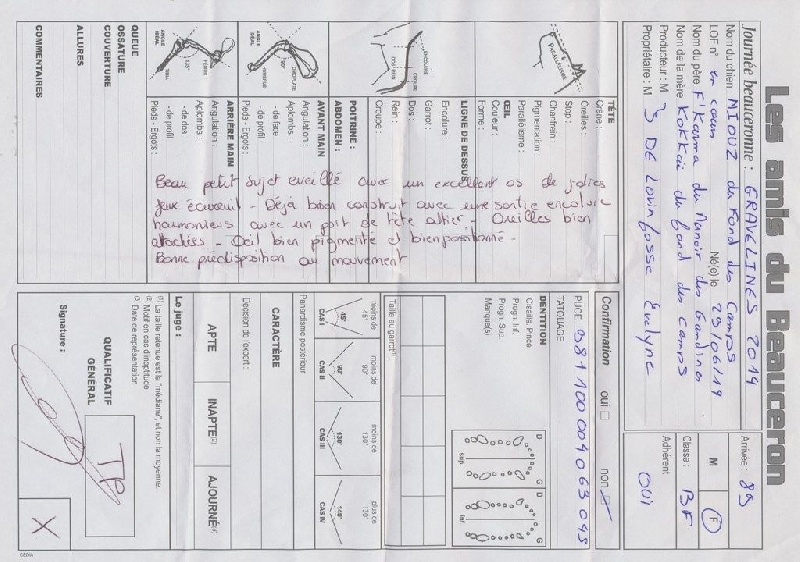 Les amis du Beauceron
Journée beauceronne : GRAVELINES 2014
Arrivée : 89
Nom du chien MIOUZ du Fond des Camps
M F
LOF n° en cours Né(e) le 29/06/14
Classe : BF
Nom du père F'Karma du Manoir des Gandines
Nom de la mère Kokkaï du fond des Camps
Adhérent OUI
Producteur : M
Propriétaire : M DE Lovinfosse Evelyne
TÊTE
Crâne :
Oreilles :
Stop :
Chanfrein :
Pigmentation
Parallélisme :
ŒIL
Couleur :
Forme :
LIGNE DE DESSUS
Encolure
Garrot :
Dos :
Rein :
Croupe :
POITRINE :
ABDOMEN :
AVANT MAIN
Angulation :
Aplombs
- de face
- de profil
Pieds - Ergots :
ARRIÈRE MAIN
Angulation :
Aplombs
- de dos
- de profil
Pieds - Ergots :
QUEUE
OSSATURE
COUVERTURE
ALLURES
COMMENTAIRES
Beau petit sujet éveillé avec un excellent os de jolies
feux écureuil - Déjà bien construit avec une sortie encolure
harmonieuse avec un port de tête altier - Oreilles bien
attachées - Oeil bien pigmenté et bien positionné -
Bonne prédisposition au mouvement
Confirmation oui non
PUCE 981100004063049
TATOUAGE
DENTITION
Cisaille, Pince
Progn. Inf.
Progn. Sup.
Manque(s)
D G D G
sup.
Taille au garrot
moins de 90° moins de 130° plus de 130°
45° 90° 130° 140°
CAS I CAS II CAS III CAS IV
Panardisme postérieur
CARACTÈRE
Décision de l'expert :
APTE INAPTE AJOURNÉ
Le juge :
(1) La taille retenue est la "médiane", et non la moyenne.
(2) Motif en cas d'inaptitude
(3) Date de représentation
QUALIFICATIF GÉNÉRAL
TP
Signature :
X